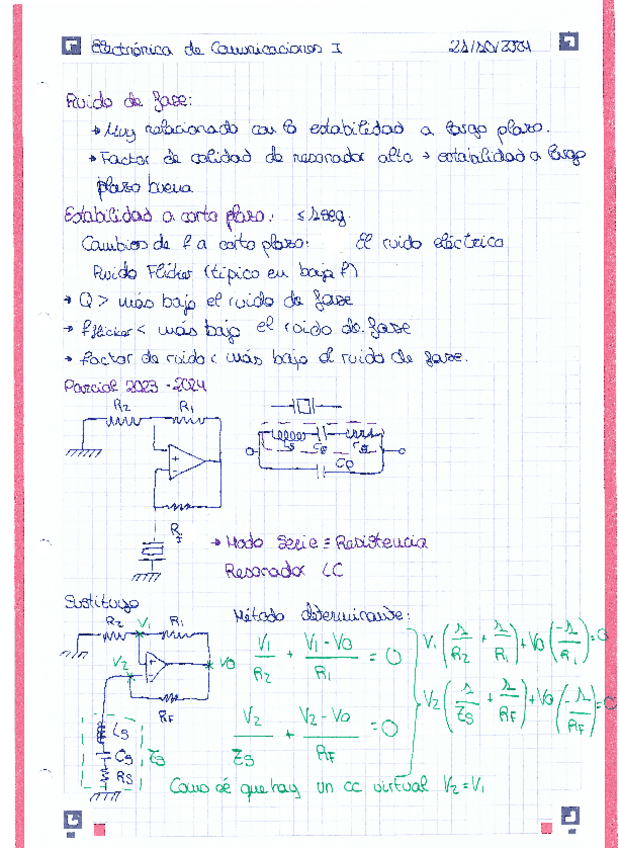 Electrónica de Comunicaciones I 21/10/2024
Ruido de fase:
→ Muy relacionado con la estabilidad a largo plazo.
→ Factor de calidad de resonador alto → estabilidad a largo
plazo buena
Estabilidad a corto plazo: ≤ 1seg.
Cambios de f a corto plazo: El ruido eléctrico
Ruido Flicker (típico en baja f)
→ Q > más bajo el ruido de fase
→ fflicker < más bajo el ruido de fase
→ factor de ruido < más bajo el ruido de fase.
Parcial 2023-2024
R2 R1
Ls Cs Rs
Cp
RF
→ Modo Serie = Resistencia
Resonador LC
Sustituyo
Método determinante:
R2 V1 R1
V2 V0
RF
Ls
Cs Zs
Rs
V1/R2 + (V1-V0)/R1 = 0
V1(1/R2 + 1/R1) + V0(-1/R1) = 0
V2/Zs + (V2-V0)/RF = 0
V2(1/Zs + 1/RF) + V0(-1/RF) = 0
Como sé que hay un cc virtual V2=V1